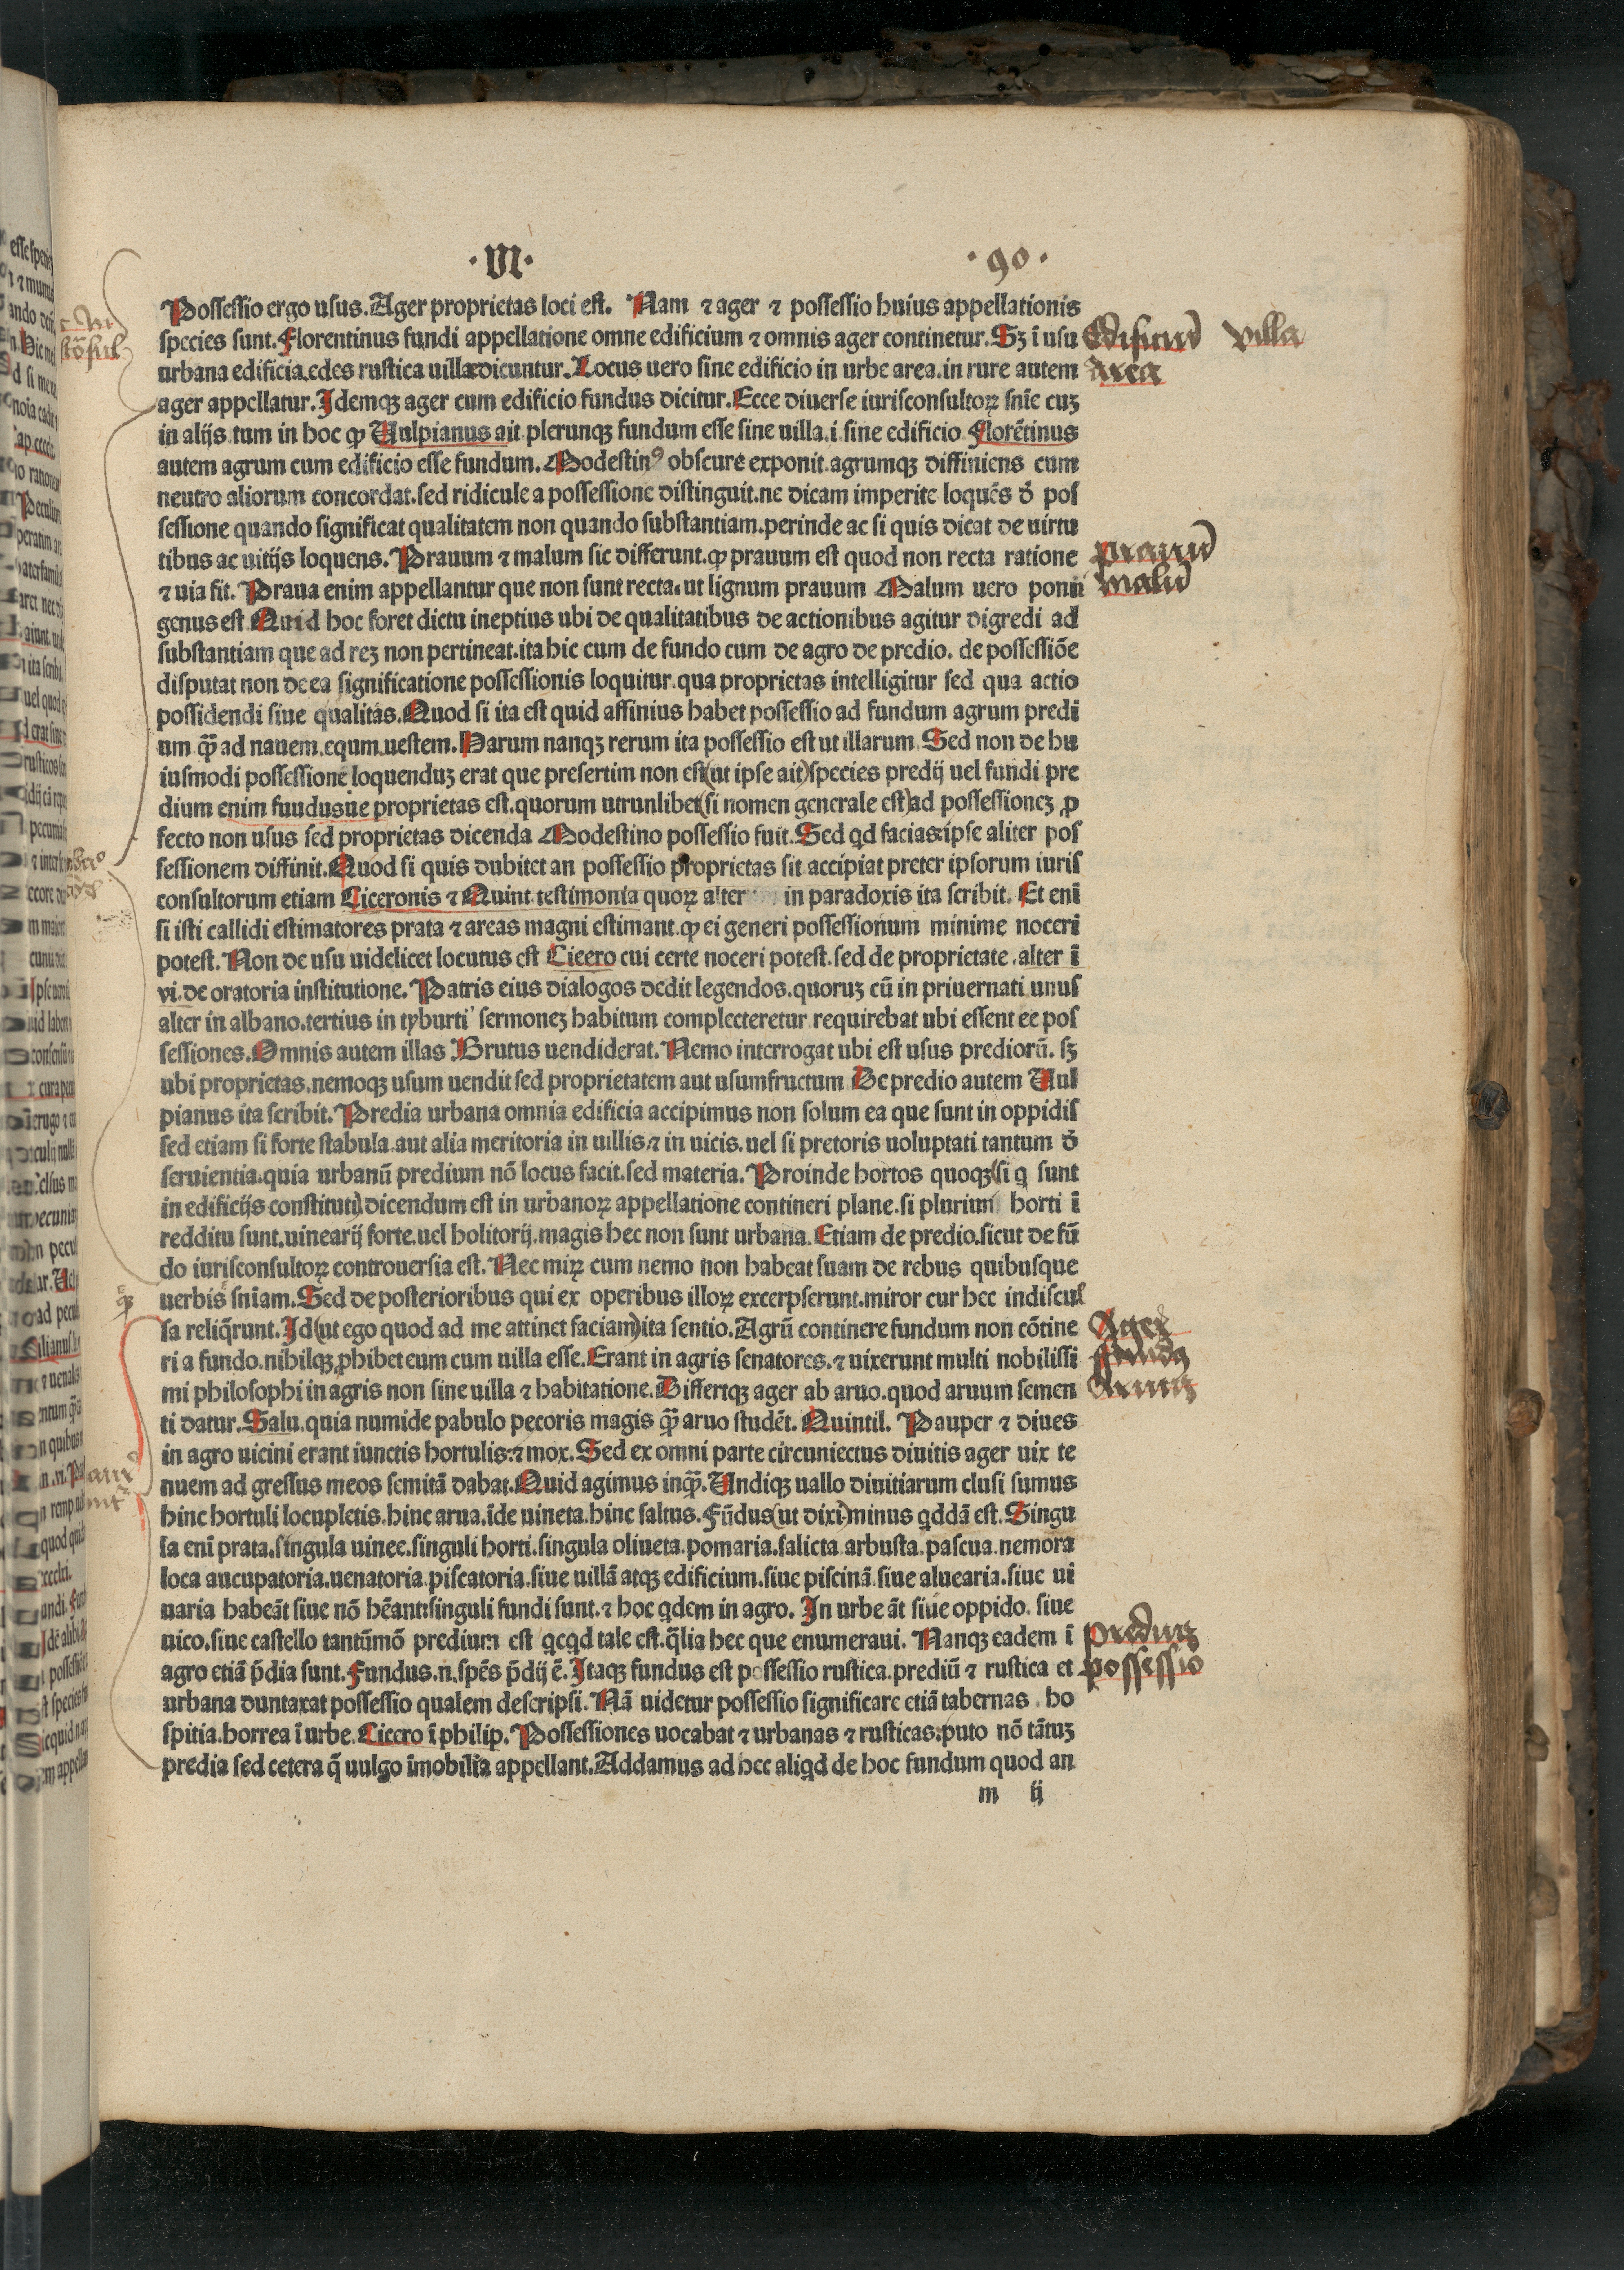 ·VI· ·90·
Possessio ergo usus. Ager proprietas loci est. Nam ⁊ ager ⁊ possessio huius appellationis
species sunt. Florentinus fundi appellatione omne edificium ⁊ omnis ager continetur. Sꝫ ĩ usu
urbana edificia.edes rustica uillædicuntur. Locus uero sine edificio in urbe area.in rure autem
ager appellatur. Idemqꝫ ager cum edificio fundus dicitur. Ecce diuerse iurisconsultoꝝ snĩe cuꝫ
in alijs.tum in hoc ꝙ Vulpianus ait.plerunqꝫ fundum esse sine uilla.i.sine edificio Florẽtinus
autem agrum cum edificio esse fundum. Modestinꝰ obscure exponit.agrumqꝫ diffiniens cum
neutro aliorum concordat.sed ridicule a possessione distinguit.ne dicam imperite loquẽs đ pos
sessione quando significat qualitatem non quando substantiam.perinde ac si quis dicat de uirtu
tibus ac uitijs loquens. Prauum ⁊ malum sic differunt.ꝙ prauum est quod non recta ratione
⁊ uia fit. Praua enim appellantur que non sunt recta.ut lignum prauum Malum uero ponit
genus est Quid hoc foret dictu ineptius ubi de qualitatibus de actionibus agitur digredi ad
substantiam que ad reꝫ non pertineat.ita hic cum de fundo cum de agro de predio. de possessiõe
disputat non de ea significatione possessionis loquitur.qua proprietas intelligitur sed qua actio
possidendi siue qualitas. Quod si ita est quid affinius habet possessio ad fundum agrum predi
um q̃ꝫ ad nauem.equm.uestem. Harum nanqꝫ rerum ita possessio est ut illarum. Sed non de hu
iusmodi possessione loquenduꝫ erat que presertim non est(ut ipse ait)species predij uel fundi pre
dium enim fuudusue proprietas est.quorum utrunlibet(si nomen generale est)ad possessioneꝫ ꝓ
fecto non usus sed proprietas dicenda Modestino possessio fuit. Sed qd facias:ipse aliter pos
sessionem diffinit. Quod si quis dubitet an possessio proprietas sit accipiat preter ipsorum iuris
consultorum etiam Ciceronis ⁊ Quint.testimonia quoꝝ alter in paradoxis ita scribit. Et enĩ
si isti callidi estimatores prata ⁊ areas magni estimant.ꝙ ei generi possessionum minime noceri
potest. Non de usu uidelicet locutus est Cicero cui certe noceri potest.sed de proprietate.alter ĩ
vi.de oratoria institutione. Patris eius dialogos dedit legendos.quoruꝫ cũ in priuernati unus
alter in albano.tertius in tyburti' sermoneꝫ habitum complecteretur requirebat ubi essent ee pos
sessiones. Omnis autem illas Brutus uendiderat. Nemo interrogat ubi est usus prediorũ. sꝫ
ubi proprietas.nemoqꝫ usum uendit sed proprietatem aut usumfructum De predio autem Vul
pianus ita scribit. Predia urbana omnia edificia accipimus non solum ea que sunt in oppidis
sed etiam si forte stabula.aut alia meritoria in uillis.⁊ in uicis.uel si pretoris uoluptati tantum đ
seruientia.quia urbanũ predium nõ locus facit.sed materia. Proinde hortos quoqꝫ(si q sunt
in edificijs constituti)dicendum est in urbanoꝝ appellatione contineri plane.si plurimũ horti ĩ
redditu sunt.uinearij forte.uel holitorij.magis hec non sunt urbana. Etiam de predio.sicut de fũ
do iurisconsultoꝝ controuersia est. Nec miꝝ cum nemo non habeat suam de rebus quibusque
uerbis sniam. Sed de posterioribus qui ex operibus illoꝝ excerpserunt.miror cur hec indiscus
sa reliq̃runt. Id(ut ego quod ad me attinet faciam)ita sentio. Agrũ continere fundum non cõtine
ri a fundo.nihilqꝫ ꝓhibet eum cum uilla esse. Erant in agris senatores.⁊ uixerunt multi nobilissi
mi philosophi in agris non sine uilla ⁊ habitatione. Differtqꝫ ager ab aruo.quod aruum semen
ti datur. Salu.quia numide pabulo pecoris magis q̃ꝫ aruo studẽt. Quintil. Pauper ⁊ diues
in agro uicini erant iunctis hortulis:⁊ mox. Sed ex omni parte circuniectus diuitis ager uix te
nuem ad gressus meos semitã dabat. Quid agimus inq̃ꝫ. Undiqꝫ uallo diuitiarum clusi sumus
hinc hortuli locupletis.hinc arua.ĩde uineta.hinc saltus. Fũdus(ut dixi)minus qddã est. Singu
la enĩ prata.singula uinee.singuli horti.singula oliueta.pomaria.salicta arbusta.pascua.nemora
loca aucupatoria.uenatoria piscatoria.siue uillã atqꝫ edificium.siue piscinã.siue aluearia.siue ui
uaria habeãt siue nõ hẽant:singuli fundi sunt.⁊ hoc qdem in agro. In urbe ãt siue oppido. siue
uico.siue castello tantũmõ predium est qcqd tale est.q̃lia hec que enumeraui. Nanqꝫ eadem ĩ
agro etiã p̃dia sunt. Fundus.n.spẽs p̃dij ẽ. Itaqꝫ fundus est possessio rustica.prediũ ⁊ rustica et
urbana duntaxat possessio qualem descripsi. Nã uidetur possessio significare etiã tabernas . ho
spitia.horrea ĩ urbe. Cicero ĩ philip. Possessiones uocabat ⁊ urbanas ⁊ rusticas.puto nõ tãtuꝫ
predia sed cetera q̃ uulgo ĩmobilia appellant. Addamus ad hec aliqd de hoc fundum quod an
m ij
Edificiũ Villa
Area
prauũ
malũ
Ager
fundꝰ
Aruuꝫ
prediuꝫ
possessio